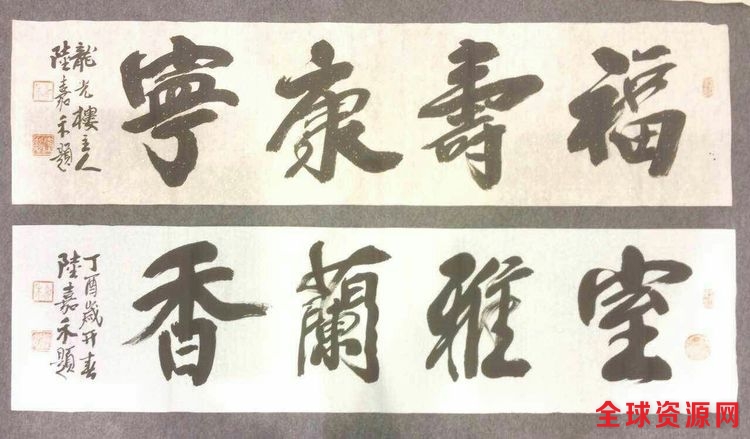 福壽康寧
龍光樓主人
陸嘉禾題
室雅蘭香
丁酉歲開春
陸嘉禾題
全球资源网